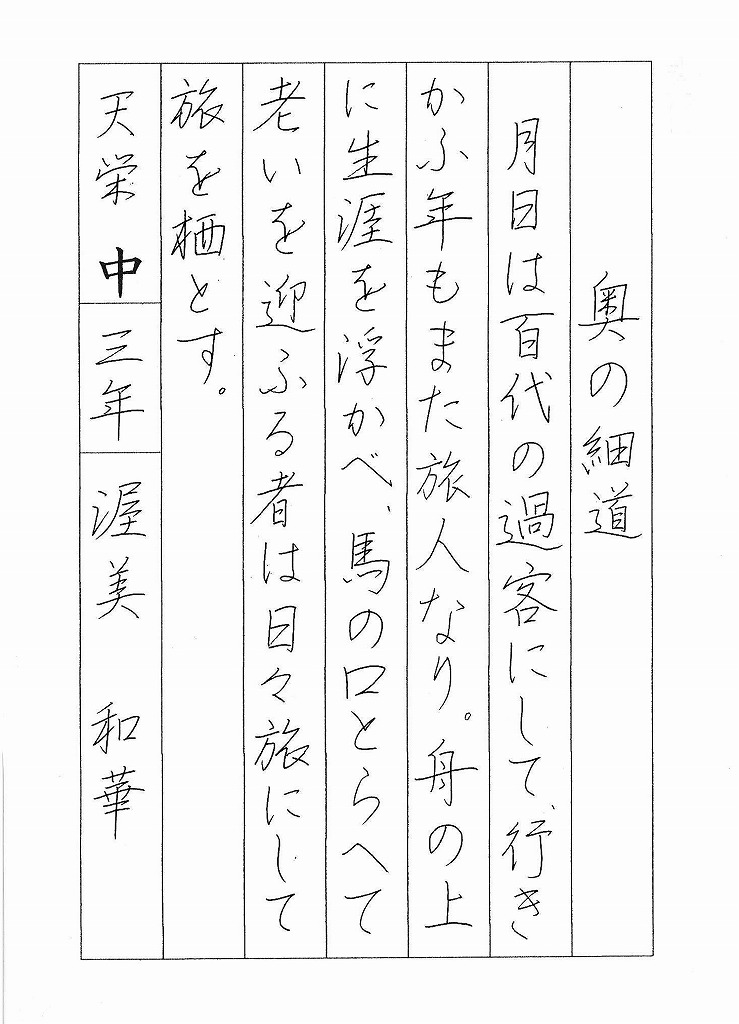 奥の細道
月日は百代の過客にして、行き
かふ年もまた旅人なり。舟の上
に生涯を浮かべ、馬の口とらへて
老いを迎ふる者は日々旅にして
旅を栖とす。
天栄中 三年 渥美 和華